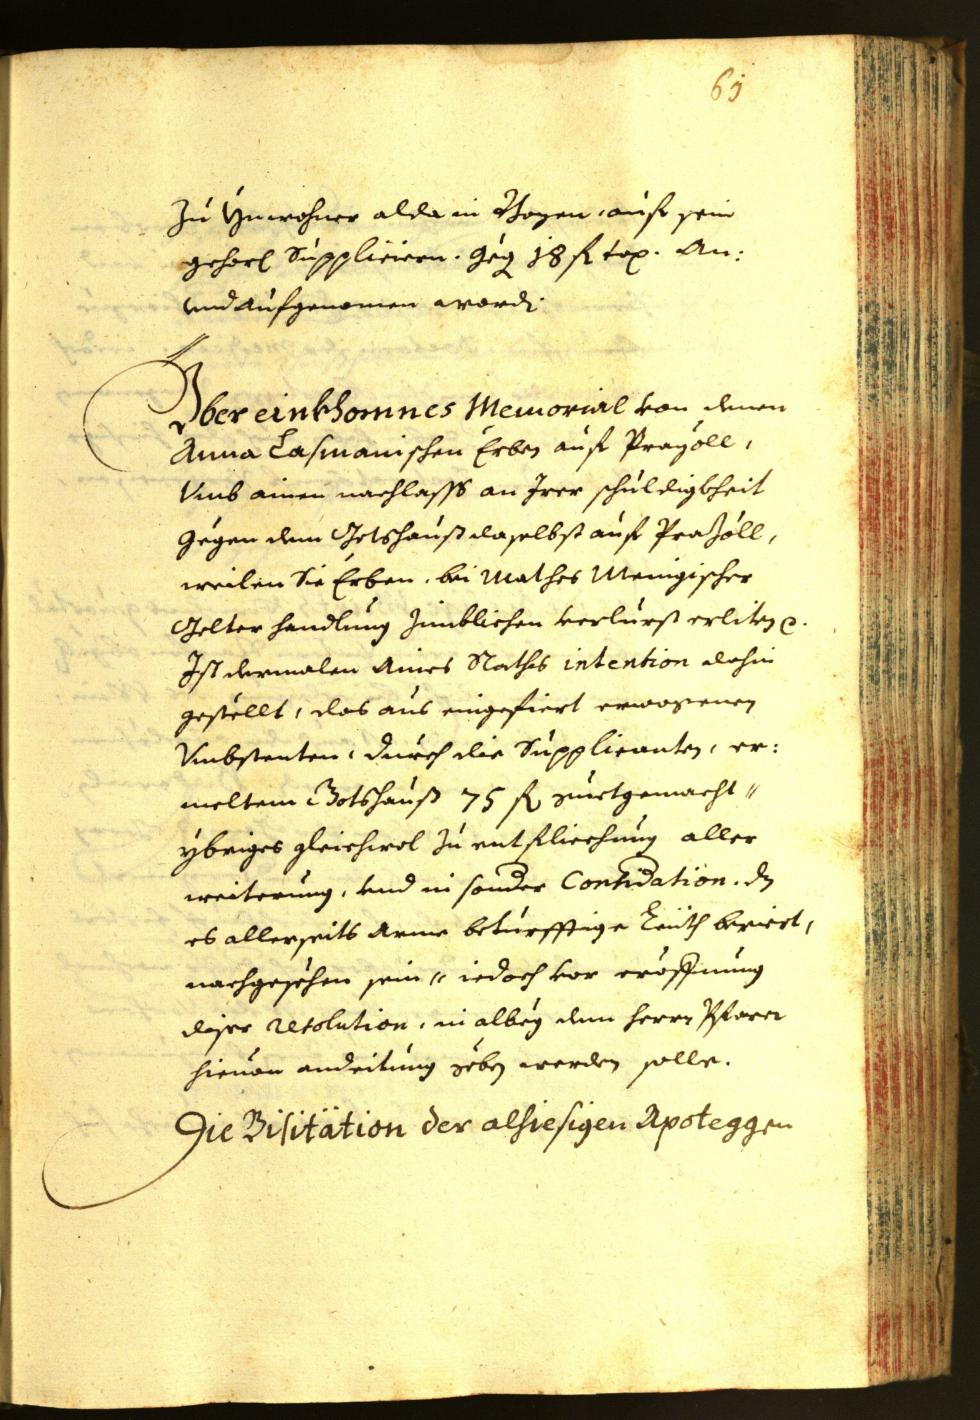 65
Zu Ynwohner alda in Bozen, auf sein
gehorß Supplicirn. geg 18 fl tax. An:
und aufgenomen word:
Yber einkhomnes Memorial von denen
Anna Casmanischen Erben auf Prazöll,
Umb ainen nachlass an Irer schuldigkheit
gegen dem Gotshauß daselbst auf Prazöll,
weilen Sie Erben. bei Mathes Menigischer
Gelter handlung zimblichen verlurst erliten etc.
Ist dermalen Aines Raths intention dahin
gestellt, das aus eingefiert erwogenen
Umbstenten, durch die Supplicanten, er:
meltem Gotshauß 75 fl guetgemacht "
ybriges gleichwol zu entfliechung aller
weiterung, und in sonder Considation. dz
es allerseits Arme beturfftige Leüth beriert,
nachgesehen sein " iedoch vor eröffnung
diser resolution, in albeg dem herrn Pfarer
hievon andeitung geben werden solle.
Die Visitätion der alhiesigen Apoteggen